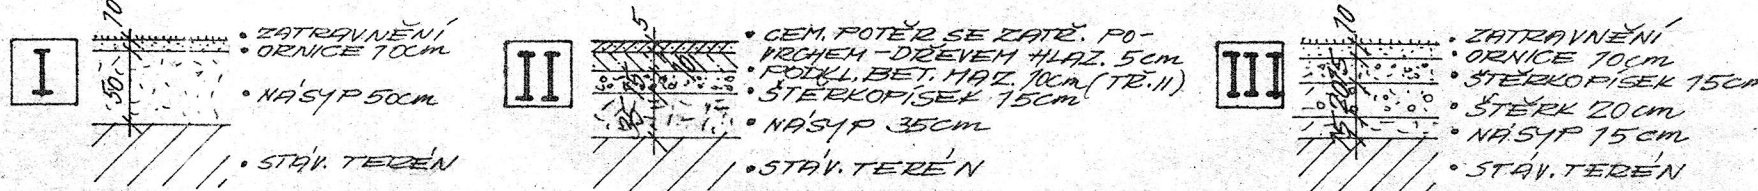 I
10
50
• ZATRAVNĚNÍ
• ORNICE 10cm
• NÁSYP 50cm
• STÁV. TERÉN
II
5
10
15
35
• CEM. POTĚR SE ZATŘ. PO-
VRCHEM - DŘEVEM HLAZ. 5cm
• PODKL. BET. MAZ. 10cm (TŘ. II)
• ŠTĚRKOPÍSEK 15cm
• NÁSYP 35cm
• STÁV. TERÉN
III
10
15
20
15
• ZATRAVNĚNÍ
• ORNICE 10cm
• ŠTĚRKOPÍSEK 15cm
• ŠTĚRK 20cm
• NÁSYP 15cm
• STÁV. TERÉN